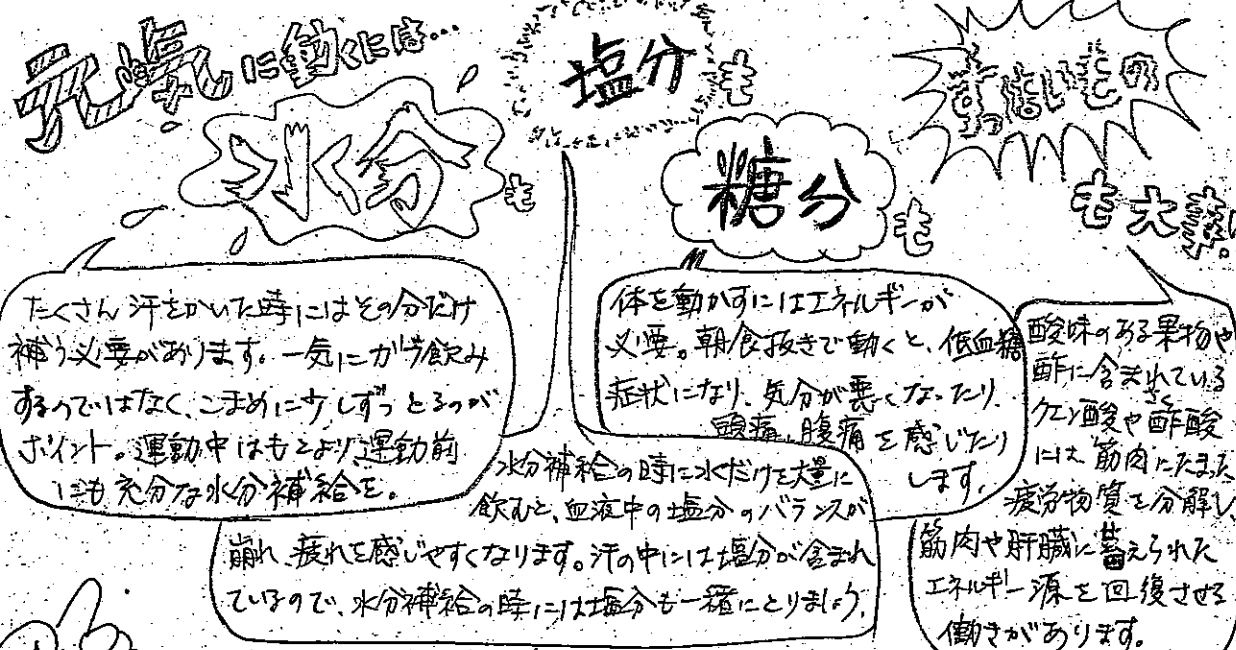 元気に動くには…
水分も
塩分も
糖分も
すっぱいもの
も大事。
たくさん汗をかいた時にはその分だけ
補う必要があります。一気にガブ飲み
するのではなく、こまめに少しずつとるのが
ポイント。運動中はもとより、運動前
にも充分な水分補給を。
水分補給の時に水だけを大量に
飲むと、血液中の塩分のバランスが
崩れ、疲れを感じやすくなります。汗の中には塩分が含まれ
ているので、水分補給の時には塩分も一緒にとりましょう。
体を動かすにはエネルギーが
必要。朝食抜きで動くと、低血糖
症状になり、気分が悪くなったり、
頭痛、腹痛を感じたり
します。
酸味のある果物や
酢に含まれている
クエン酸や酢酸
には、筋肉にたまった
疲労物質を分解し、
筋肉や肝臓に蓄えられた
エネルギー源を回復させる
働きがあります。